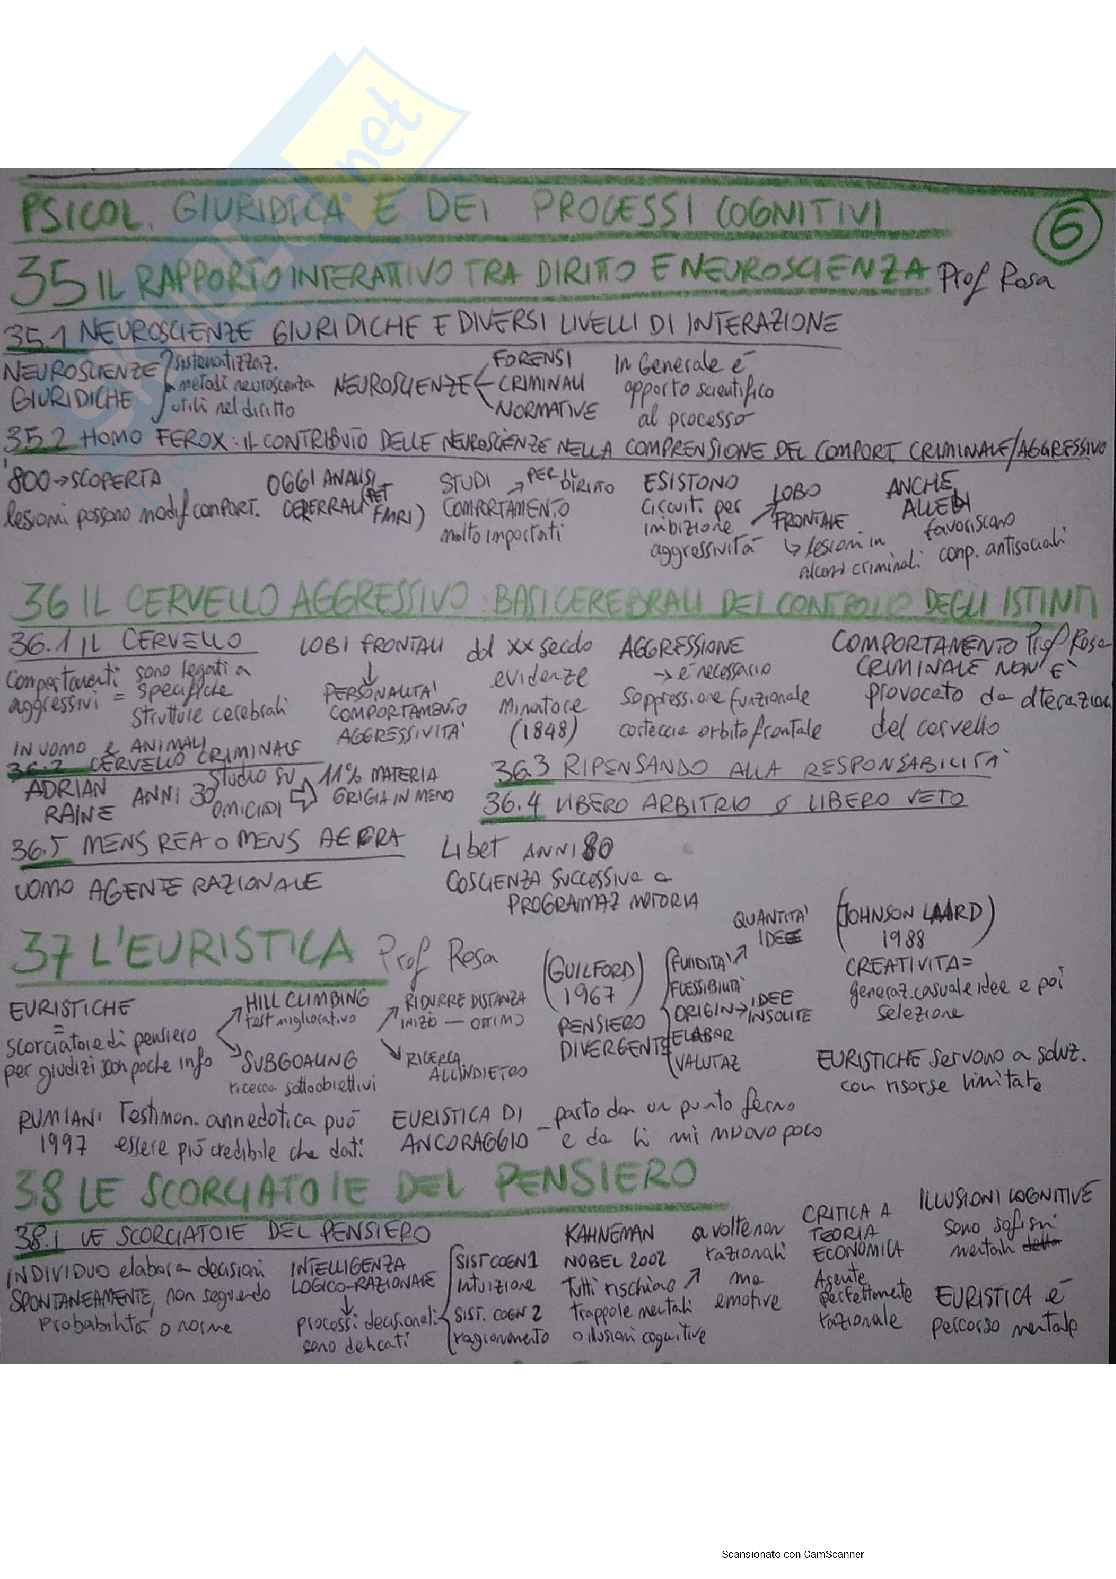 PSICOL. GIURIDICA E DEI PROCESSI COGNITIVI
6
35 IL RAPPORTO INTERATTIVO TRA DIRITTO E NEUROSCIENZA Prof Rosa
35.1 NEUROSCIENZE GIURIDICHE E DIVERSI LIVELLI DI INTERAZIONE
NEUROSCIENZE GIURIDICHE
sistematizzaz.
metodi neuroscienza
utili nel diritto
NEUROSCIENZE
FORENSI
CRIMINALI
NORMATIVE
In Generale è
apporto scientifico
al processo
35.2 HOMO FEROX: IL CONTRIBUTO DELLE NEUROSCIENZE NELLA COMPRENSIONE DEL COMPORT CRIMINALE/AGGRESSIVO
'800 → SCOPERTA
lesioni possono modif comport.
OGGI ANALISI
CEREBRALI (PET
FMRI)
STUDI → PER IL DIRITTO
COMPORTAMENTO
molto importati
ESISTONO
circuiti per
inibizione
aggressività
LOBO
FRONTALE
↳ lesioni in
alcuni criminali
ANCHE
ALLELI
favoriscono
comp. antisociali
36 IL CERVELLO AGGRESSIVO: BASI CEREBRALI DEL CONTROLLO DEGLI ISTINTI
Prof Rosa
36.1 IL CERVELLO
Comportamenti
aggressivi =
sono legati a
specifiche
strutture cerebrali
IN UOMO E ANIMALI
LOBI FRONTALI
↓
PERSONALITA'
COMPORTAMENTO
AGGRESSIVITA'
dal XX secolo
evidenze
Minatore
(1848)
AGGRESSIONE
→ è necessario
soppressione funzionale
corteccia orbitofrontale
COMPORTAMENTO
CRIMINALE NON È
provocato da alterazioni
del cervello
36.2 CERVELLO CRIMINALE
ADRIAN
RAINE
ANNI 30
studio su
OMICIDI
⇨ 11% MATERIA
GRIGIA IN MENO
36.3 RIPENSANDO ALLA RESPONSABILITA'
36.4 LIBERO ARBITRIO O LIBERO VETO
36.5 MENS REA O MENS AEGRA
UOMO AGENTE RAZIONALE
Libet ANNI 80
COSCIENZA SUCCESSIVA a
PROGRAMMAZ MOTORIA
37 L'EURISTICA Prof Rosa
EURISTICHE
=
scorciatoie di pensiero
per giudizi con poche info
HILL CLIMBING
test migliorativo
SUBGOALING
ricerca sottobiettivi
RIDURRE DISTANZA
INIZIO — OTTIMO
RICERCA
ALL'INDIETRO
(GUILFORD)
1967
PENSIERO
DIVERGENTE
FLUIDITA'
FLESSIBILITA'
ORIGIN → IDEE INSOLITE
ELABOR
VALUTAZ
QUANTITA'
IDEE
(JOHNSON LAARD)
1988
CREATIVITA =
generaz. casuale idee e poi
selezione
EURISTICHE servono a soluz.
con risorse limitate
RUMIANI
1997
Testimon. annedotica può
essere più credibile che dati
EURISTICA DI
ANCORAGGIO
— parto da un punto fermo
e da lì mi muovo poco
38 LE SCORCIATOIE DEL PENSIERO
38.1 LE SCORCIATOIE DEL PENSIERO
INDIVIDUO elabora decisioni
SPONTANEAMENTE, non seguendo
probabilità o norme
INTELLIGENZA
LOGICO-RAZIONALE
↓
processi decisionali
sono delicati
SIST COGN 1
Intuizione
SIST. COGN 2
ragionamento
KAHNEMAN
NOBEL 2002
Tutti rischiano
trappole mentali
o illusioni cognitive
a volte non
razionali
ma
emotive
CRITICA A
TEORIA
ECONOMICA
Agente
perfettamente
razionale
ILLUSIONI COGNITIVE
sono sofismi
mentali
EURISTICA È
percorso mentale
Scansionato con CamScanner